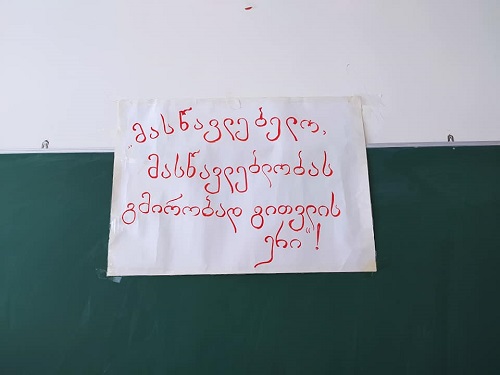 „მასწავლებელო,
მასწავლებლობას
გმირობად გითვლის
ერი“!